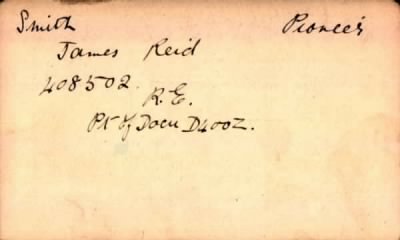 Smith Pioneer
James Reid
408502.
R.E.
Pt of Docu D4002.